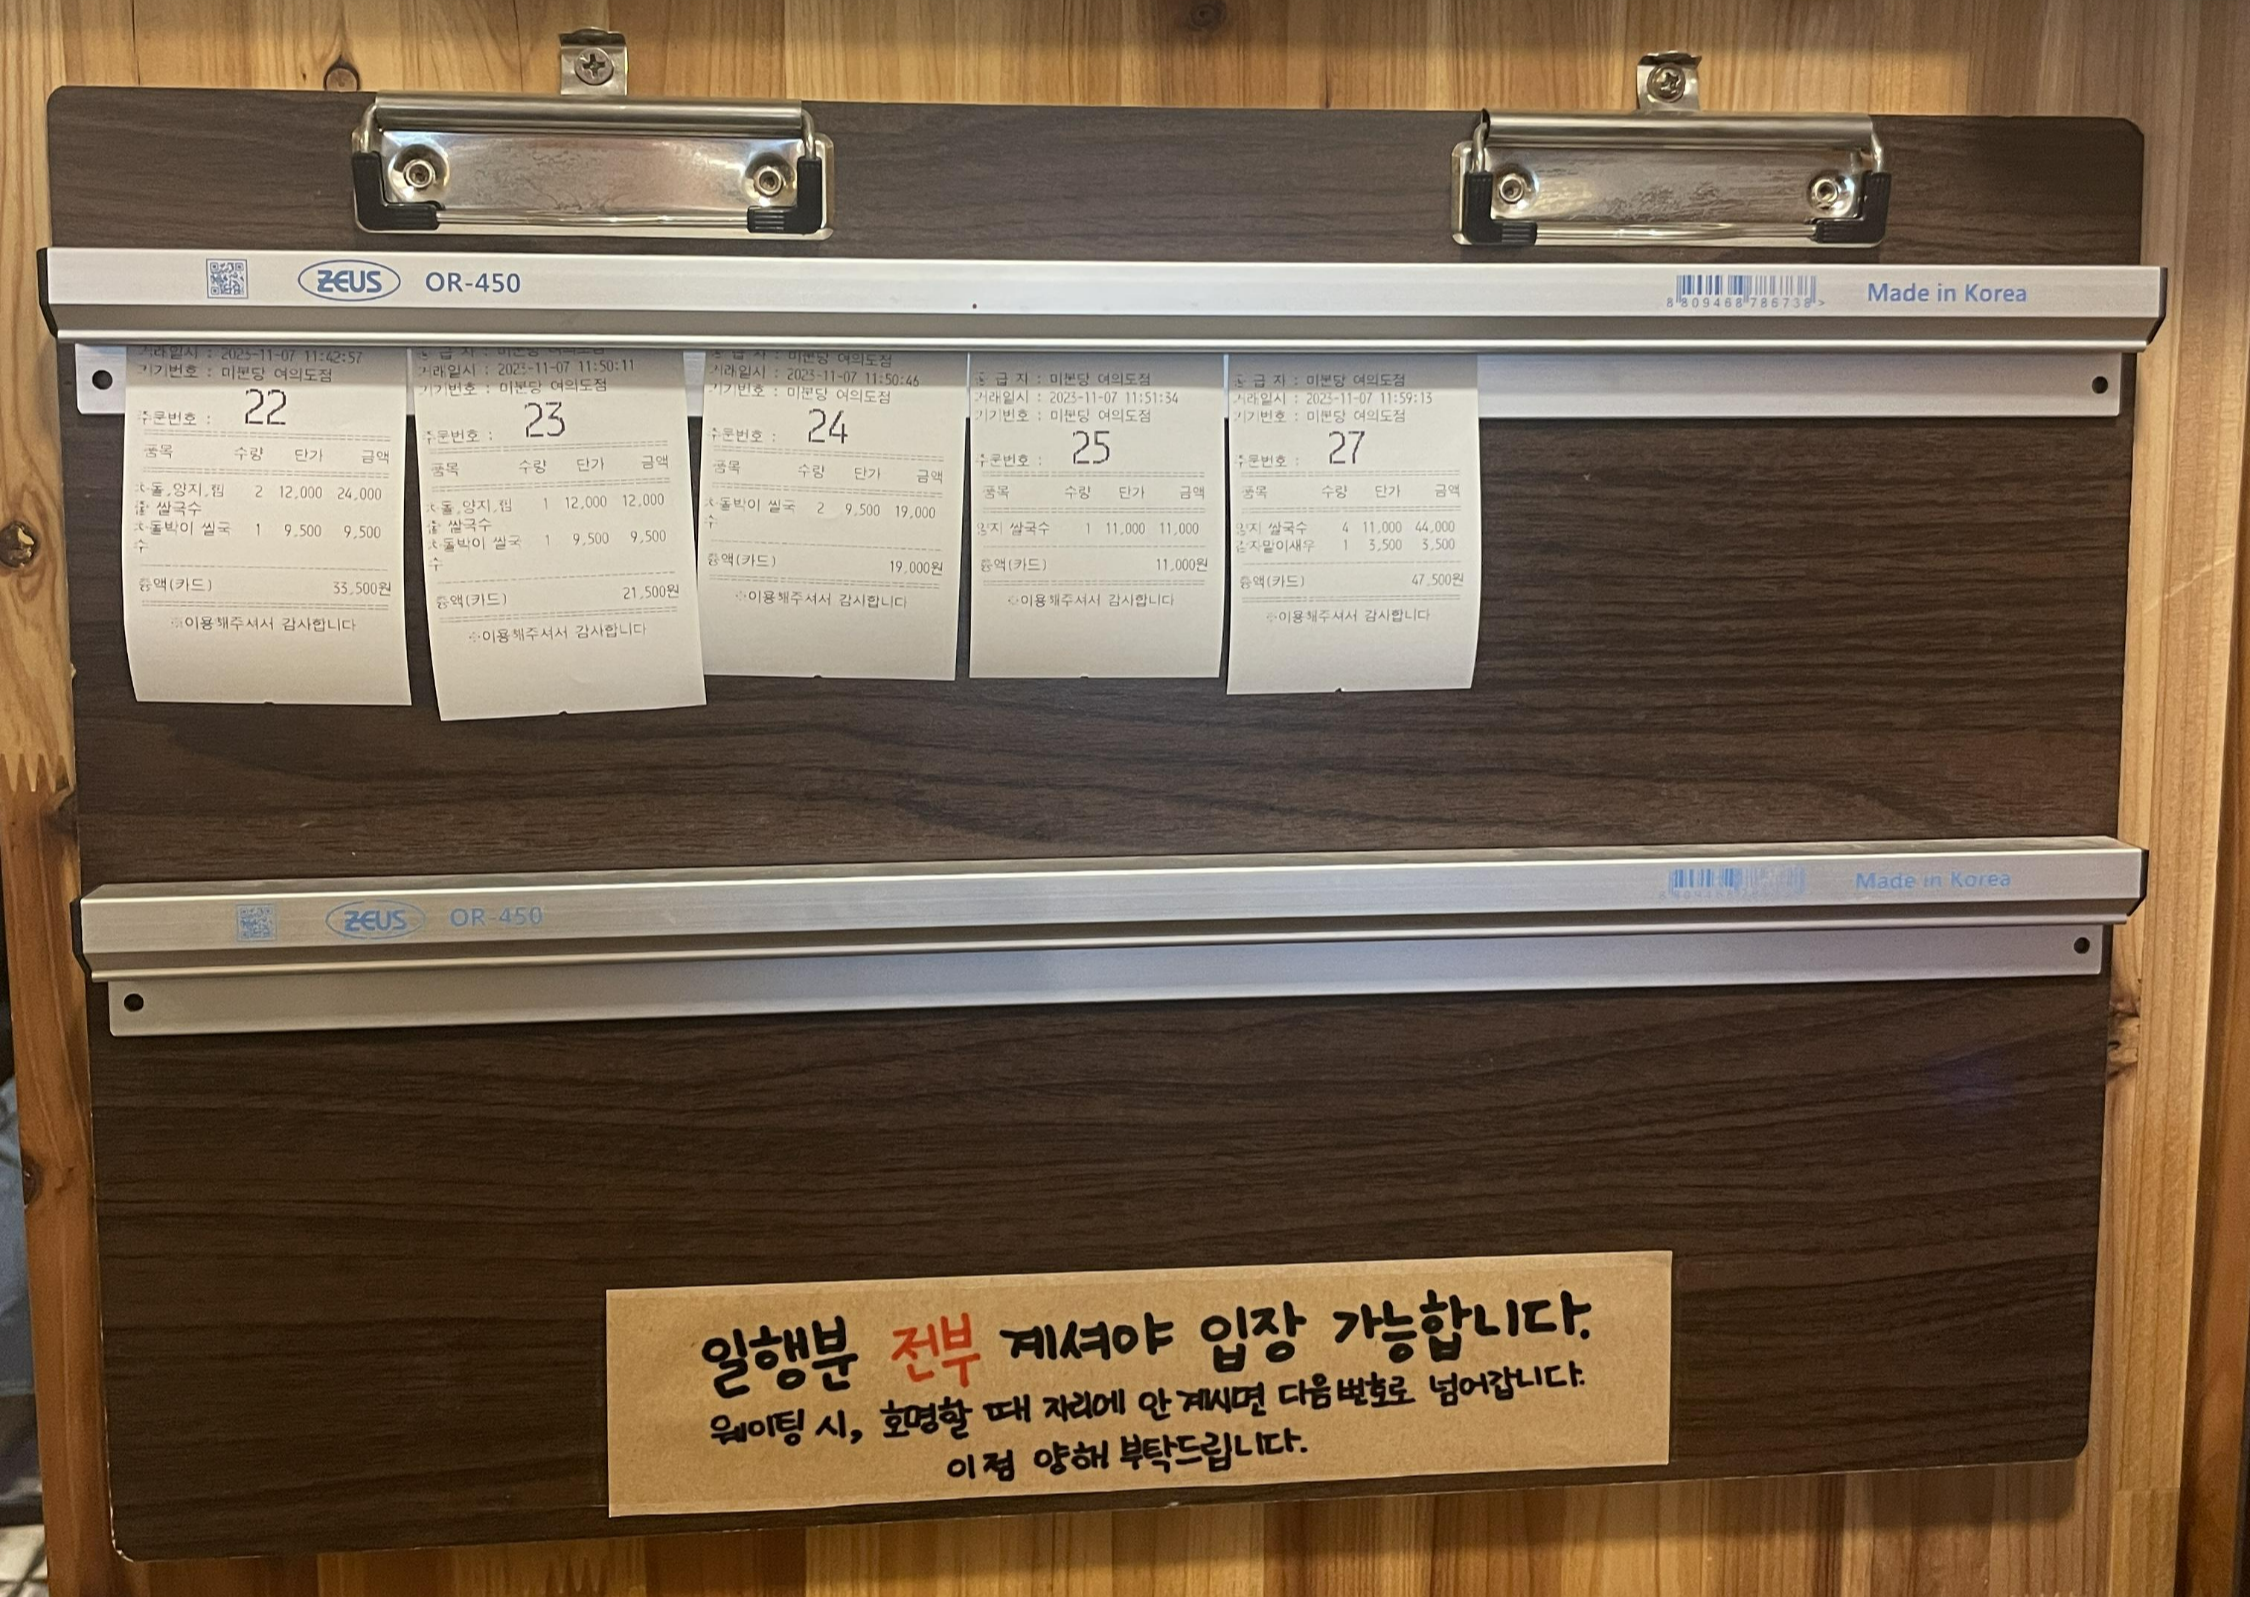 ZEUS OR-450 8809468786738> Made in Korea
거래일시 : 2023-11-07 11:42:57
기기번호 : 미분당 여의도점
주문번호 : 22
품목 수량 단가 금액
차돌,양지,힘 2 12,000 24,000
줄 쌀국수
차돌박이 쌀국 1 9,500 9,500
수
총액(카드) 33,500원
※이용해주셔서 감사합니다
공 급 자 : 미분당 여의도점
거래일시 : 2023-11-07 11:50:11
기기번호 : 미분당 여의도점
주문번호 : 23
품목 수량 단가 금액
차돌,양지,힘 1 12,000 12,000
줄 쌀국수
차돌박이 쌀국 1 9,500 9,500
수
총액(카드) 21,500원
※이용해주셔서 감사합니다
공 급 자 : 미분당 여의도점
거래일시 : 2023-11-07 11:50:46
기기번호 : 미분당 여의도점
주문번호 : 24
품목 수량 단가 금액
차돌박이 쌀국 2 9,500 19,000
수
총액(카드) 19,000원
※이용해주셔서 감사합니다
공 급 자 : 미분당 여의도점
거래일시 : 2023-11-07 11:51:34
기기번호 : 미분당 여의도점
주문번호 : 25
품목 수량 단가 금액
양지 쌀국수 1 11,000 11,000
총액(카드) 11,000원
※이용해주셔서 감사합니다
공 급 자 : 미분당 여의도점
거래일시 : 2023-11-07 11:59:13
기기번호 : 미분당 여의도점
주문번호 : 27
품목 수량 단가 금액
양지 쌀국수 4 11,000 44,000
감자말이새우 1 3,500 3,500
총액(카드) 47,500원
※이용해주셔서 감사합니다
ZEUS OR-450 Made in Korea
일행분 전부 계셔야 입장 가능합니다.
웨이팅 시, 호명할 때 자리에 안 계시면 다음 번호로 넘어갑니다.
이 점 양해 부탁드립니다.